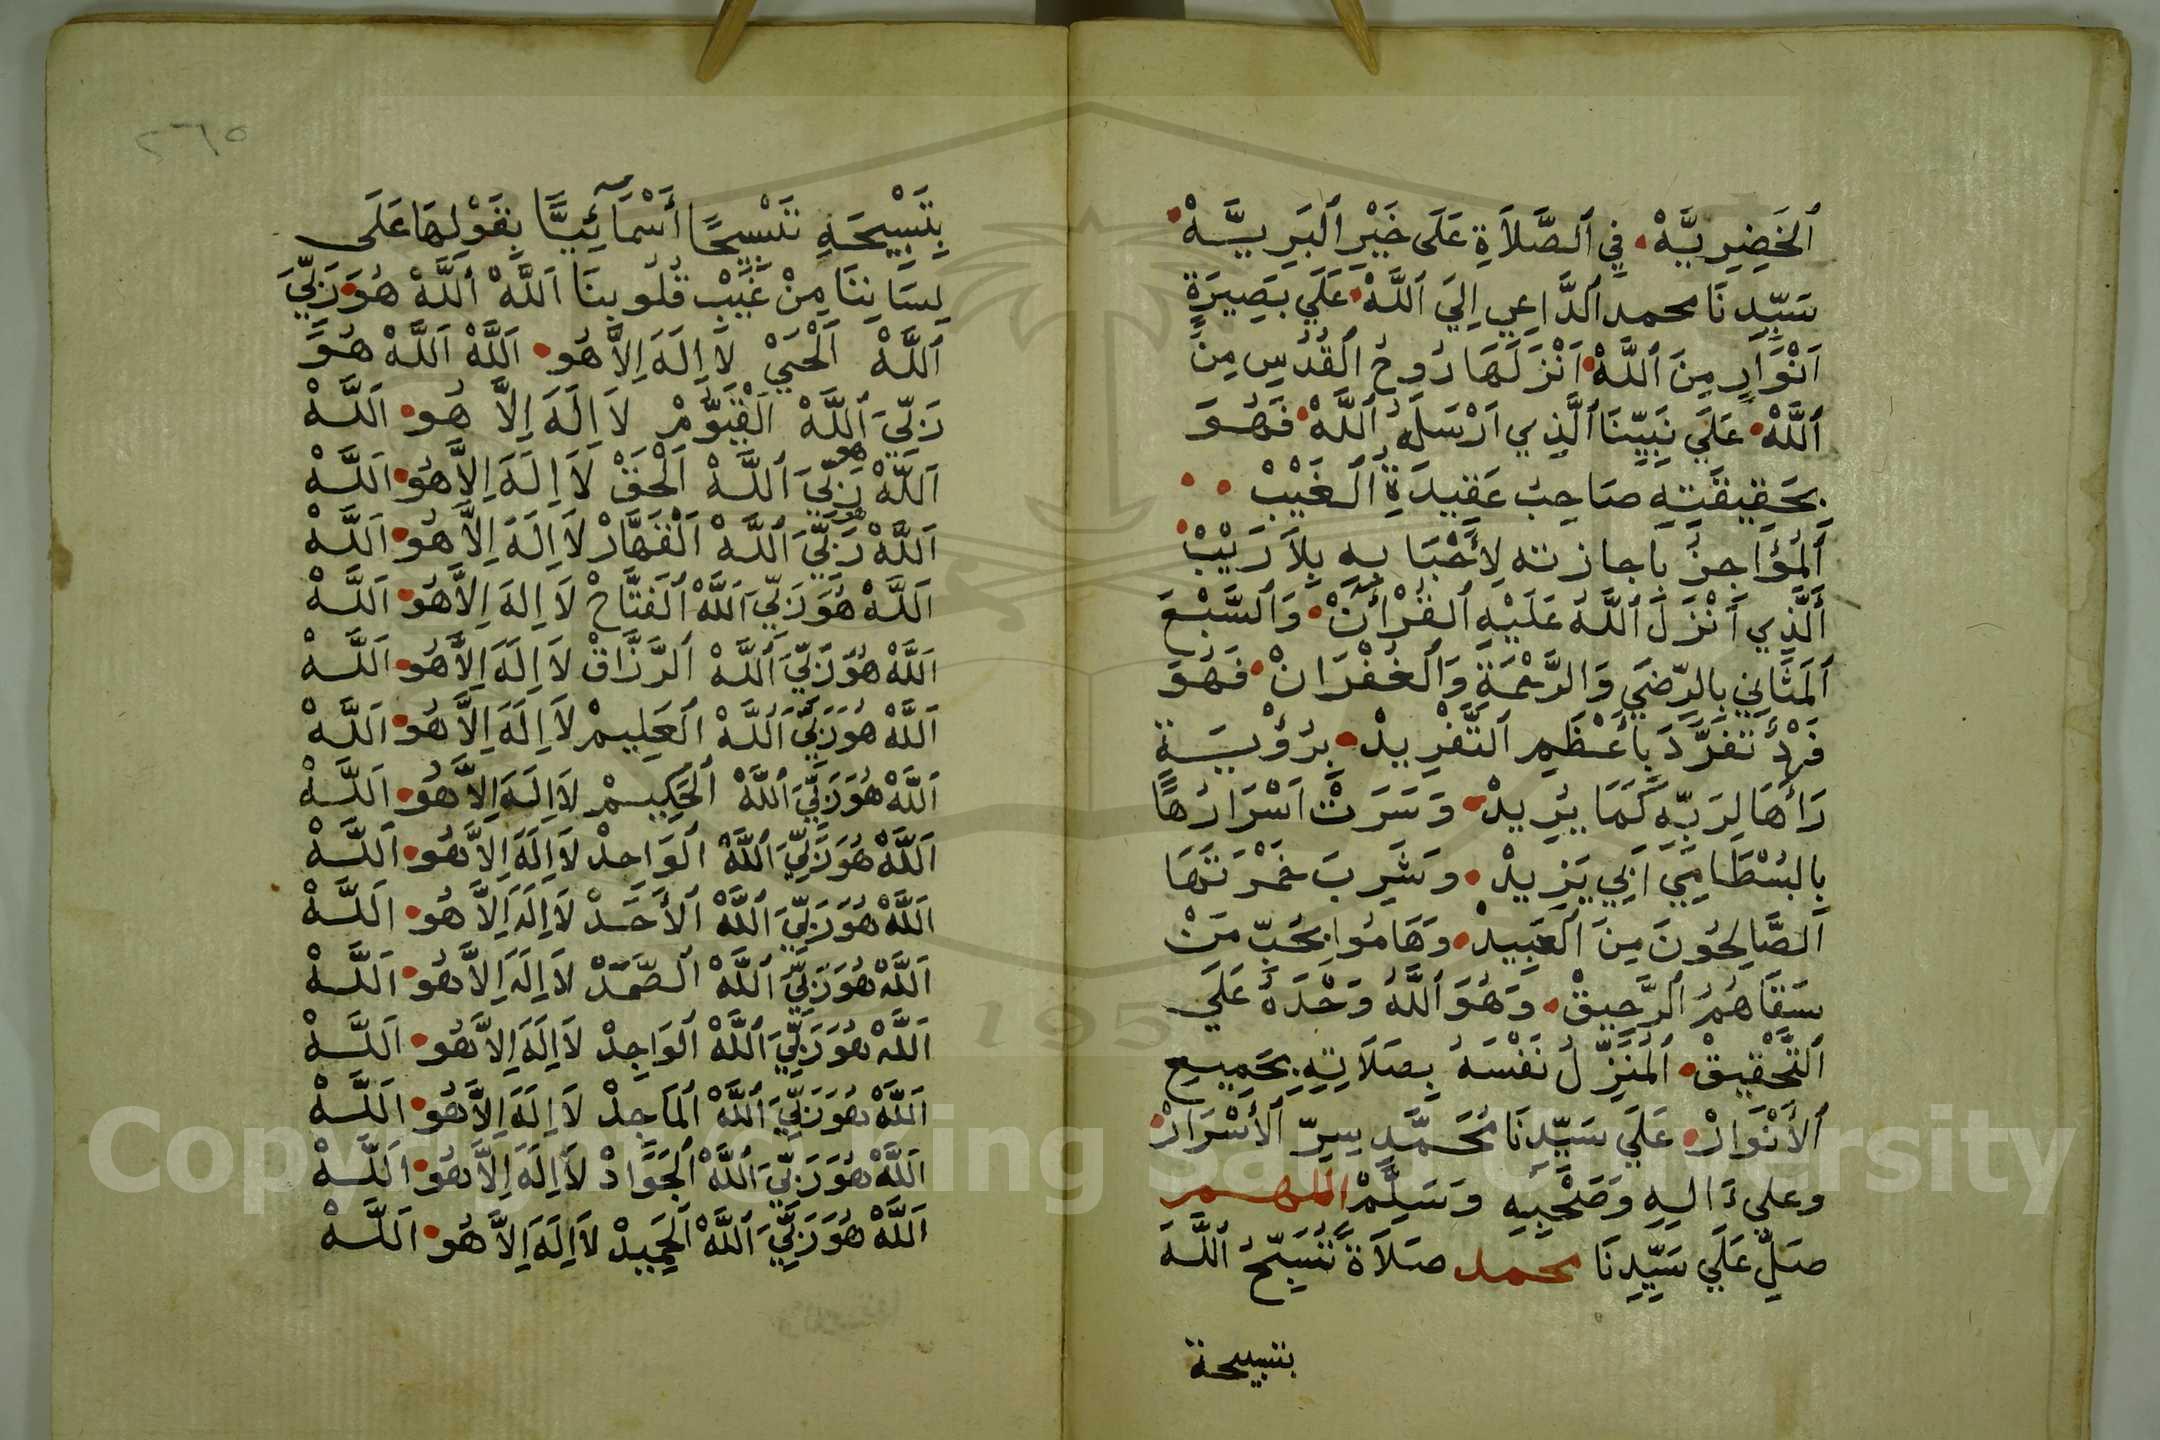 اَلْخَضِرِيَّهْ فِي اَلصَّلاَةِ عَلَى خَيْرِ اَلْبَرِيَّهْ
سَيِّدِنَا محمد اَلدَّاعِي اِلَي اَللَّهْ عَلَي بَصِيرَةِ
اَنْوَارٍ مِنَ اَللَّهْ اَنْزَلَهَا رُوحُ اَلْقُدُسِ مِنَ
اَللَّهْ عَلَي نَبِيِّنَا اَلَّذِي اَرْسَلَهُ اَللَّهْ فَهُوَ
بِحَقِيقَتِهِ صَاحِبُ عَقِيدَةِ اَلْغَيْبْ
اَلْمُؤَاجِزُ بِاجازته لأَحْبَابِهِ بِلاَ رَيْبْ
اَلَّذِي اَنْزَلَ اَللَّهُ عَلَيْهِ اَلْقُرْآنْ وَاَلسَّبْعَ
اَلْمَثَانِي بِالرِّضَي وَالرَّحْمَةِ وَاَلْغُفْرَانْ فَهُوَ
فَرْدٌ تَفَرَّدَ بِأَعْظَمِ اَلتَّفْرِيدْ بِرُؤْيَةٍ
رَاَهَا لِرَبِّهِ كَمَا يُرِيدْ وَسَرَتْ اَسْرَارُهَا
بِالبُسْطَامِيِّ اَبِي يَزِيدْ وَشَرِبَ خَمْرَتَهَا
اَلصَّالِحُونَ مِنَ اَلْعَبِيدْ وَهَامُوا بِحُبِّ مَنْ
سَقَاهُمُ اَلرَّحِيقْ وَهُوَ اَللَّهُ وَحْدَهُ عَلَي
اَلتَّحْقِيقْ اَلْمُنَزِّلُ نَفْسَهُ بِصَلاَتِهِ بِجَمِيعِ
اَلأَنْوَارْ عَلَي سَيِّدِنَا مُحَمَّدٍ سِرِّ اَلأَسْرَارْ
وعلي ءَالِهِ وَصَحْبِهِ وَسَلِّمْ اللهم
صَلِّ عَلَي سَيِّدِنَا محمد صَلاَةً تُسَبِّحُ اَللَّهَ
بتسبيحة
٢٦١٥
بِتَسْبِيحَةِ تَسْبِيحًا أَسْمَآئِيًّا بِقَوْلِهَا عَلَى
لِسَانِنَا مِنْ غَيْبِ قُلُوبِنَا اَللَّهْ اَللَّهْ هُوَ رَبِّيَ
اَللَّهْ اَلْحَيْ لاَ اِلَهَ اِلاَّ هُو اَللَّهْ اَللَّهْ هُوَ
رَبِّيَ اَللَّهْ اَلْقَيُّومْ لاَ اِلَهَ اِلاَّ هُو اَللَّهْ
اَللَّهْ هو رَبِّيَ اَللَّهْ اَلْحَقْ لاَ اِلَهَ اِلاَّ هُو اَللَّهْ
اَللَّهْ هو رَبِّيَ اَللَّهْ اَلْقَهَّارْ لاَ اِلَهَ اِلاَّ هُو اَللَّهْ
اَللَّهْ هُوَ رَبِّيَ اَللَّهْ اَلْفَتَّاحْ لاَ اِلَهَ اِلاَّ هُو اَللَّهْ
اَللَّهْ هُوَ رَبِّيَ اَللَّهْ اَلرَّزَّاقْ لاَ اِلَهَ اِلاَّ هُو اَللَّهْ
اَللَّهْ هُوَ رَبِّيَ اَللَّهْ اَلْعَلِيمْ لاَ اِلَهَ اِلاَّ هُو اَللَّهْ
اَللَّهْ هُوَ رَبِّيَ اَللَّهْ اَلْحَكِيمْ لاَ اِلَهَ اِلاَّ هُو اَللَّهْ
اَللَّهْ هُوَ رَبِّيَ اَللَّهْ اَلْوَاحِدْ لاَ اِلَهَ اِلاَّ هُو اَللَّهْ
اَللَّهْ هُوَ رَبِّيَ اَللَّهْ اَلأَحَدْ لاَ اِلَهَ اِلاَّ هُو اَللَّهْ
اَللَّهْ هُوَ رَبِّيَ اَللَّهْ اَلصَّمَدْ لاَ اِلَهَ اِلاَّ هُو اَللَّهْ
اَللَّهْ هُوَ رَبِّيَ اَللَّهْ اَلْوَاجِدْ لاَ اِلَهَ اِلاَّ هُو اَللَّهْ
اَللَّهْ هُوَ رَبِّيَ اَللَّهْ اَلْمَاجِدْ لاَ اِلَهَ اِلاَّ هُو اَللَّهْ
اَللَّهْ هُوَ رَبِّيَ اَللَّهْ اَلْجَوَّادْ لاَ اِلَهَ اِلاَّ هُو اَللَّهْ
اَللَّهْ هُوَ رَبِّيَ اَللَّهْ اَلْحَمِيدْ لاَ اِلَهَ اِلاَّ هُو اَللَّهْ
195
Copyright © King Saud University